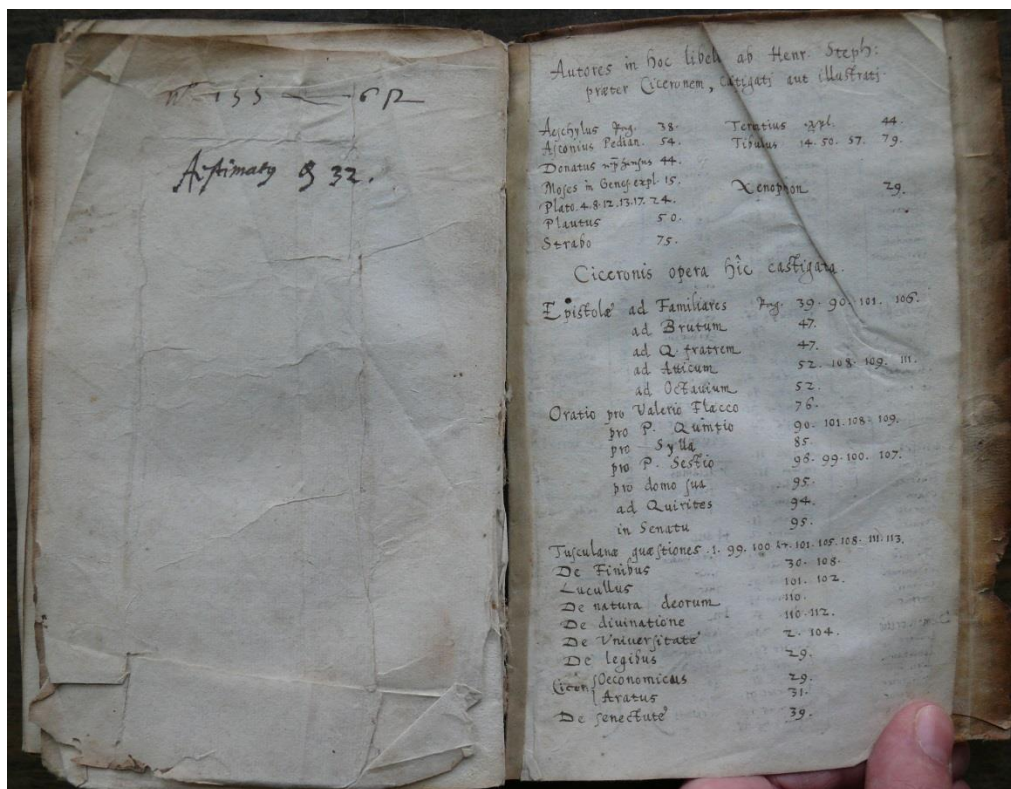 133 — 6
32.
Autores in hoc libell ab Henr. Steph:
præter Ciceronem, castigatj aut illustratj
Aeschylus Pag. 38.
Asconius Pedian. 54.
Donatus 44.
Moses in Genes. expl. 15.
Plato. 4. 8. 12. 13. 17. 24.
Plautus 50.
Strabo 75.
Terentius expl. 44.
Tibulus 14. 50. 57. 79.
Xenophon 29.
Ciceronis opera hîc castigata.
Epistolæ ad Familiares Pag. 39. 90. 101. 106.
ad Brutum 47.
ad Q. fratrem 47.
ad Atticum 52. 108. 109. 111.
ad Octauium 52.
Oratio pro Valerio Flacco 76.
pro P. Quintio 90. 101. 108. 109.
pro Sylla 85.
pro P. Sestio 98. 99. 100. 107.
pro domo sua 95.
ad Quirites 94.
in Senatu 95.
Tusculanæ quæstiones. 1. 99. 100 101. 105. 108. 111. 113.
De Finibus 30. 108.
Lucullus 101. 102.
De natura deorum 110.
De diuinatione 110. 112.
De Vniuersitate 2. 104.
De legibus 29.
Ciceron. Oeconomicus 29.
Aratus 31.
De senectute 39.